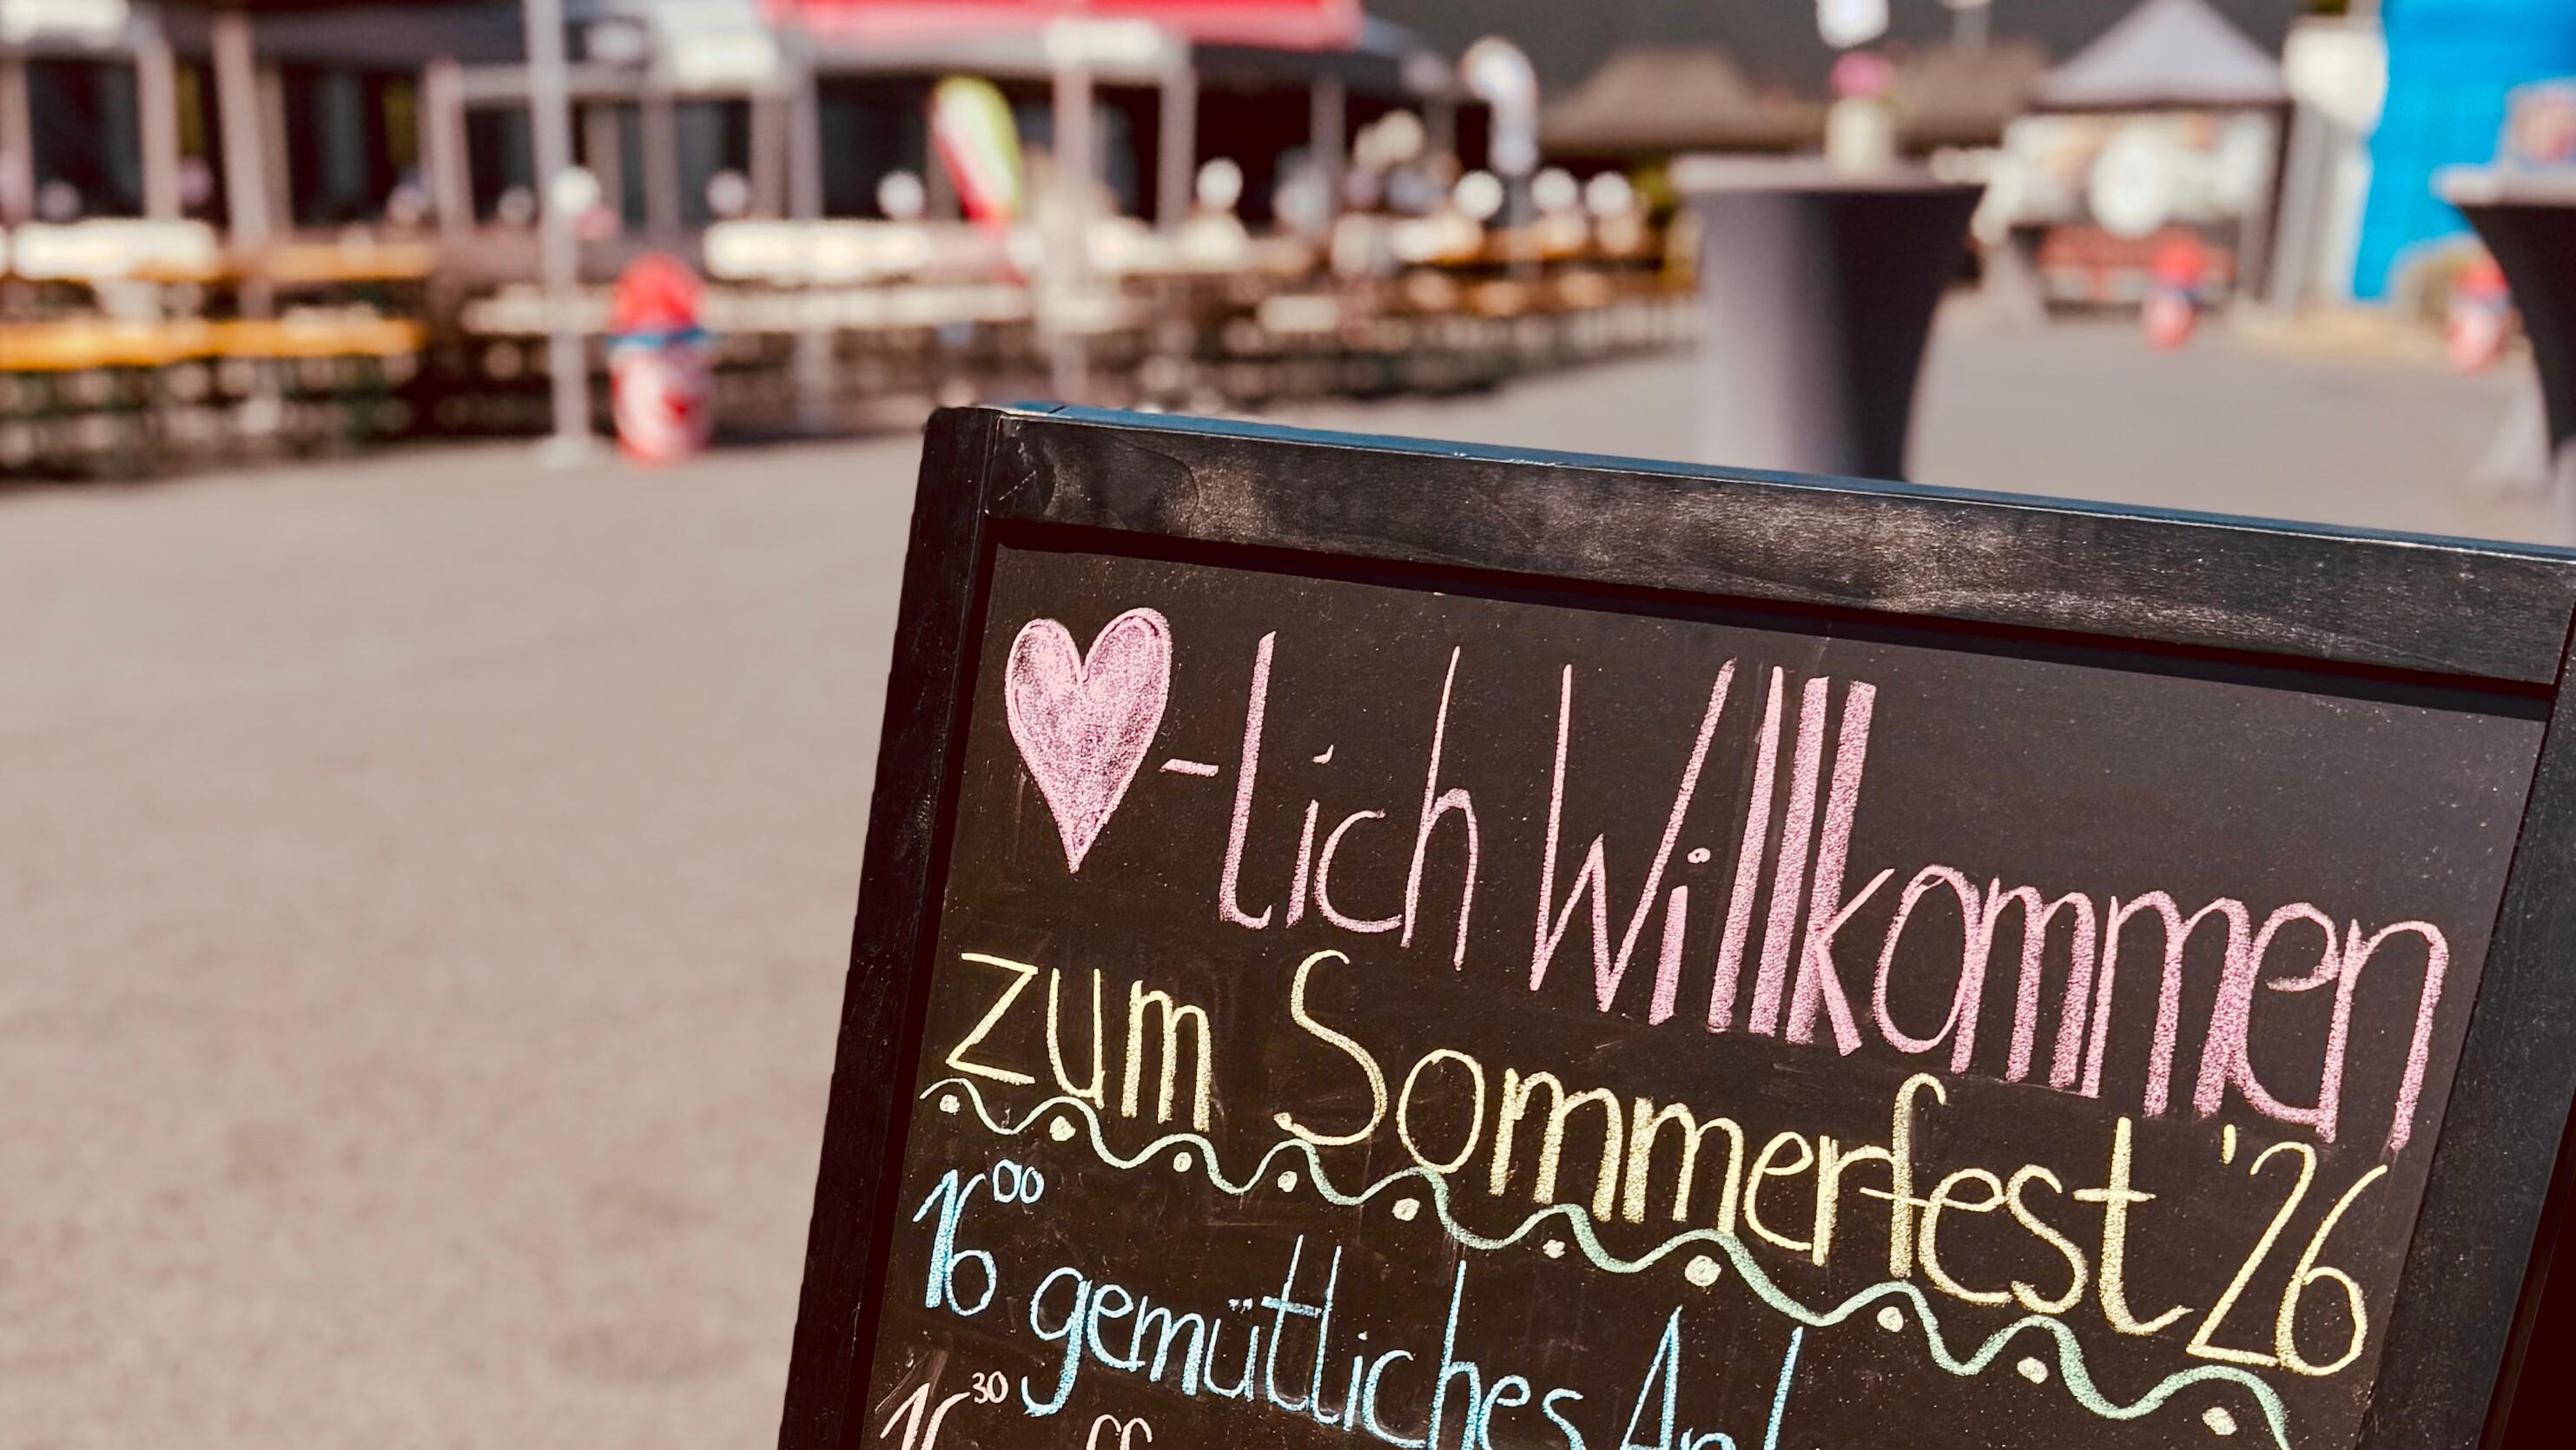 ♥-lich Willkommen
zum Sommerfest '26
16⁰⁰ gemütliches